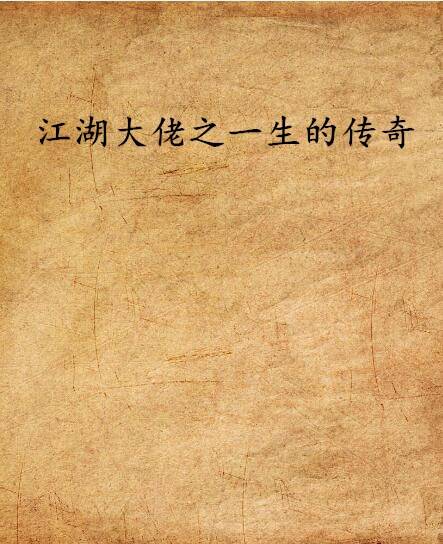 江湖大佬之一生的传奇